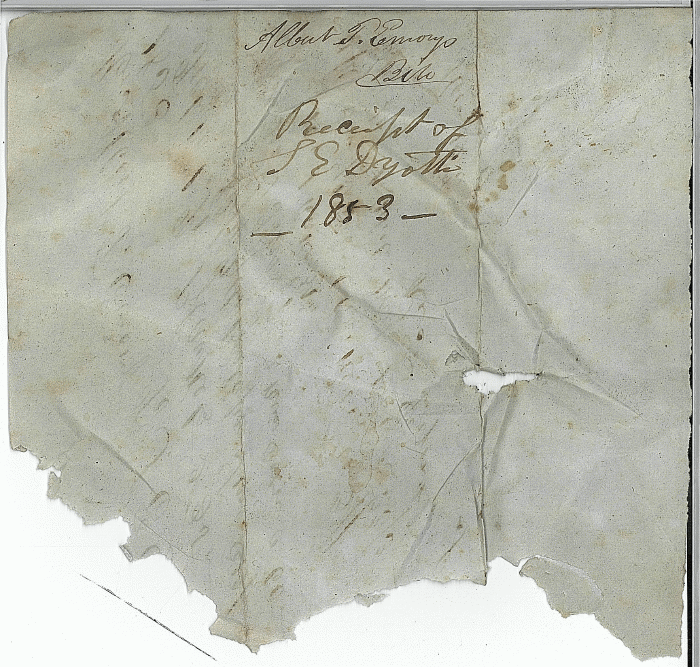 Albert P. Emorys
Receipt of
S E Dyott
— 1853 —